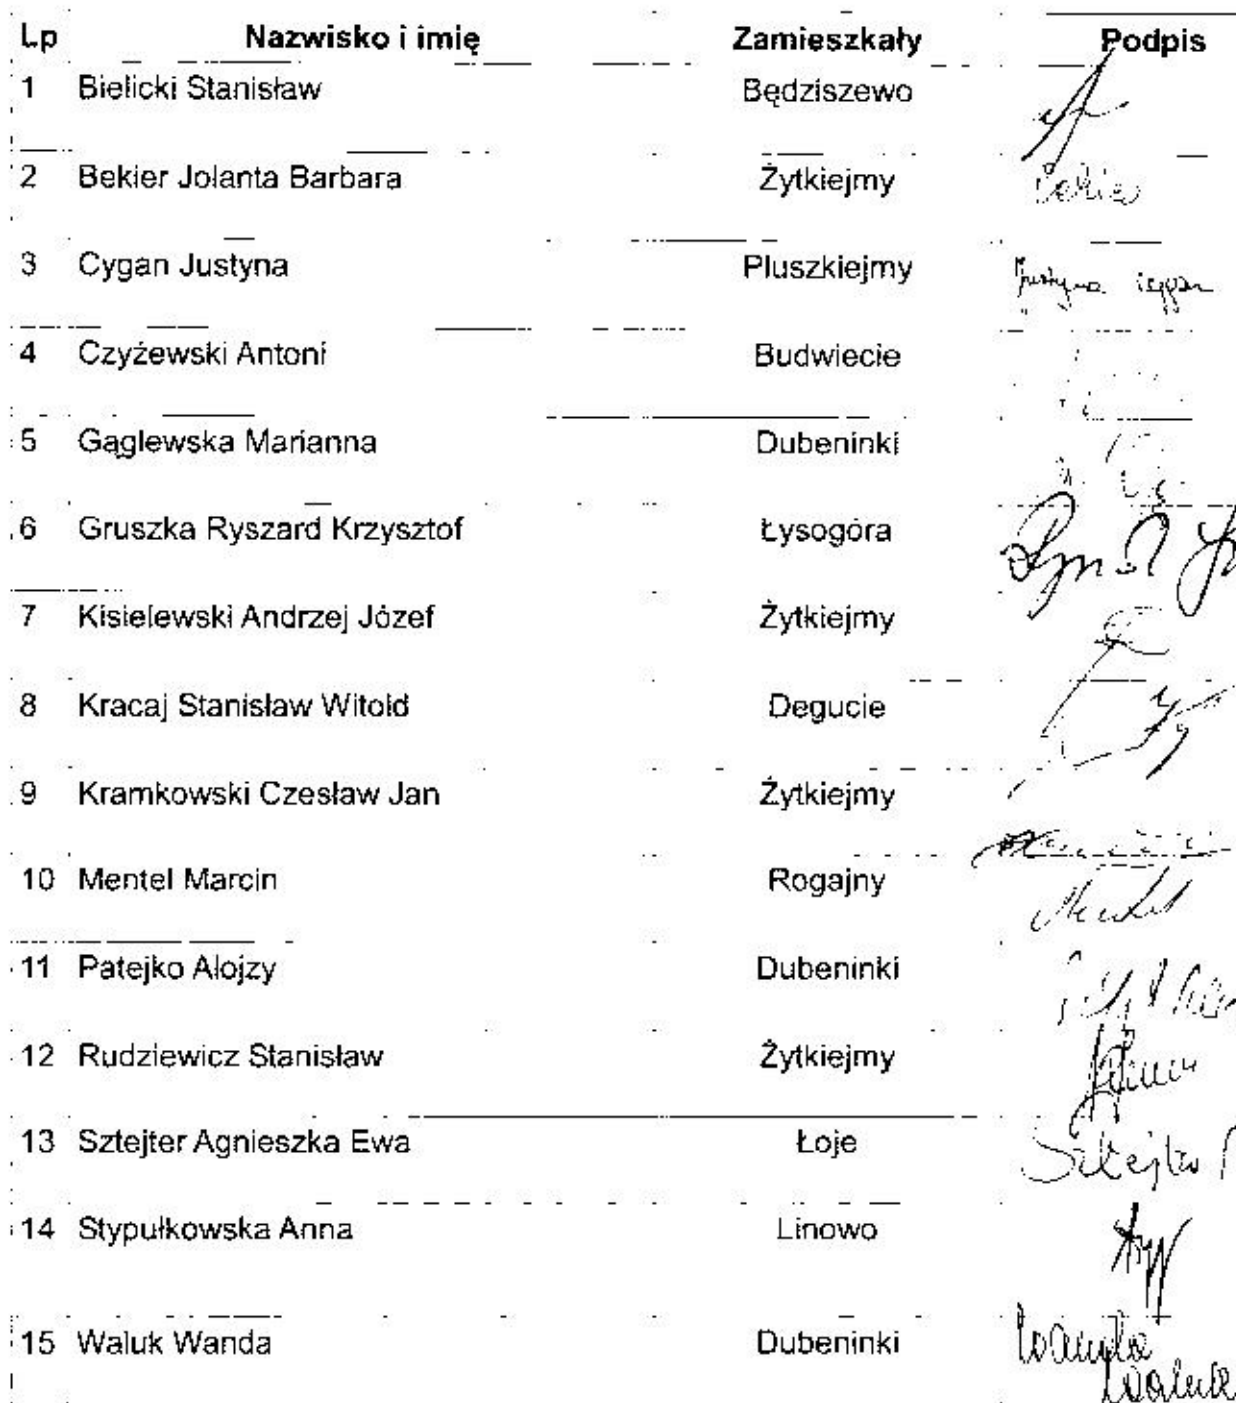 Lp Nazwisko i imię Zamieszkały Podpis
1 Bielicki Stanisław Będziszewo
2 Bekier Jolanta Barbara Żytkiejmy
3 Cygan Justyna Pluszkiejmy Justyna Cygan
4 Czyżewski Antoni Budwiecie
5 Gąglewska Marianna Dubeninki
6 Gruszka Ryszard Krzysztof Łysogóra
7 Kisielewski Andrzej Józef Żytkiejmy
8 Kracaj Stanisław Witold Degucie
9 Kramkowski Czesław Jan Żytkiejmy
10 Mentel Marcin Rogajny Mentel
11 Patejko Alojzy Dubeninki
12 Rudziewicz Stanisław Żytkiejmy
13 Sztejter Agnieszka Ewa Łoje Sztejter
14 Stypułkowska Anna Linowo
15 Waluk Wanda Dubeninki Wanda
Waluk